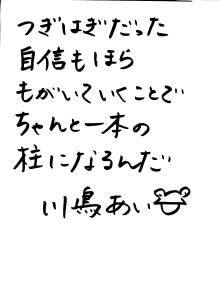 つぎはぎだった
自信もほら
もがいていくことで
ちゃんと一本の
柱になるんだ
川嶋あい